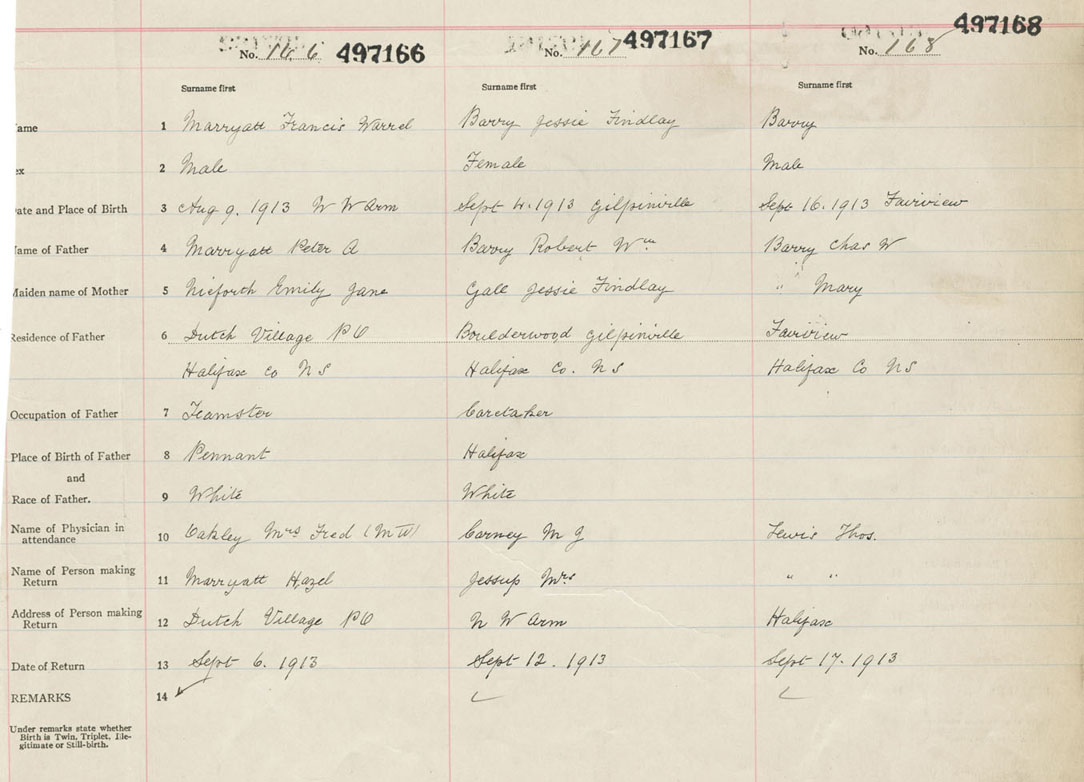 No. 166 497166 No. 167 497167 No. 168 497168
Surname first Surname first Surname first
ame 1 Marryatt Francis Warrel Barry Jessie Findlay Barry
ex 2 Male Female Male
ate and Place of Birth 3 Aug 9. 1913 N W Arm Sept 4. 1913 Gilpinville Sept 16. 1913 Fairview
ame of Father 4 Marryatt Peter A Barry Robert Wm Barry Chas W
Maiden name of Mother 5 Nieforth Emily Jane Gall Jessie Findlay " Mary
Residence of Father 6 Dutch Village P O Boulderwood Gilpinville Fairview
Halifax Co N S Halifax Co. N S Halifax Co N S
Occupation of Father 7 Teamster Caretaker
Place of Birth of Father 8 Pennant Halifax
and
Race of Father. 9 White White
Name of Physician in
attendance 10 Oakley Mrs Fred (M W) Carney M J Lewis Thos.
Name of Person making
Return 11 Marryatt Hazel Jessup Mrs " "
Address of Person making
Return 12 Dutch Village P O N W Arm Halifax
Date of Return 13 Sept 6. 1913 Sept 12. 1913 Sept 17. 1913
REMARKS 14
Under remarks state whether
Birth is Twin, Triplet, Ille-
gitimate or Still-birth.